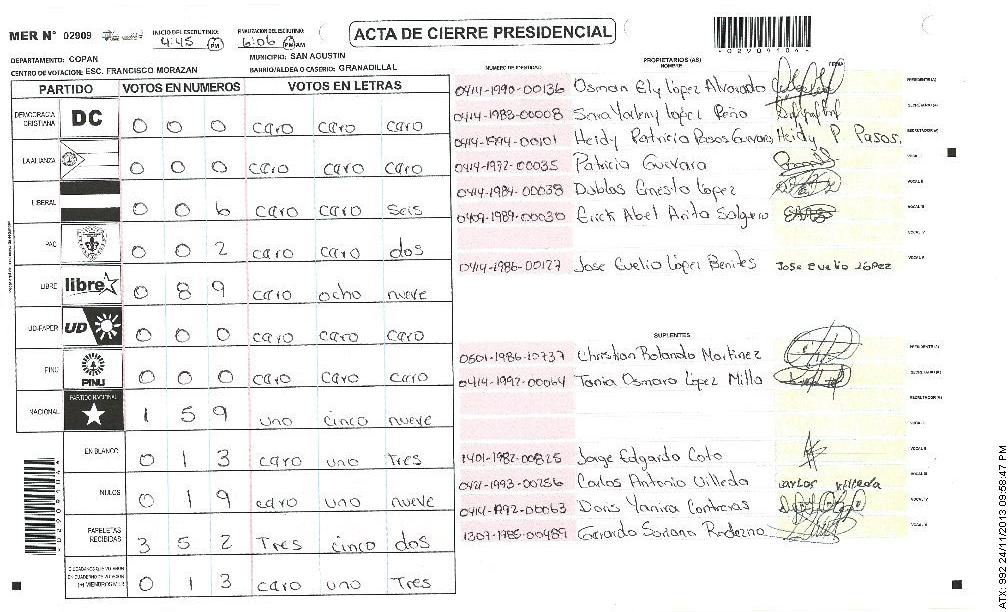 MER N° 02909 INICIO DEL ESCRUTINIO: 4:45 PM FINALIZACION DEL ESCRUTINIO: 6:06 PM AM ACTA DE CIERRE PRESIDENCIAL
02909104
DEPARTAMENTO: COPAN MUNICIPIO: SAN AGUSTIN
CENTRO DE VOTACION: ESC. FRANCISCO MORAZAN BARRIO/ALDEA O CASERIO: GRANADILLAL
PARTIDO VOTOS EN NUMEROS VOTOS EN LETRAS
DEMOCRACIA CRISTIANA DC 0 0 0 caro caro caro
LA ALIANZA 0 0 0 caro caro caro
LIBERAL 0 0 6 caro caro seis
PAC 0 0 2 caro caro dos
LIBRE libre 0 8 9 caro ocho nueve
UD-FAPER UD 0 0 0 caro caro caro
PINU PINU 0 0 0 caro caro caro
NACIONAL PARTIDO NACIONAL 1 5 9 uno cinco nueve
EN BLANCO 0 1 3 caro uno Tres
NULOS 0 1 9 caro uno nueve
PAPELETAS RECIBIDAS 3 5 2 Tres cinco dos
CIUDADANOS QUE VOTARON EN CUADERNO DE VOTACION (+) MIEMBROS MER 0 1 3 caro uno Tres
PROPRIETARIOS (AS)
NUMERO DE IDENTIDAD NOMBRE FIRMA
0414-1990-00136 Osman Ely López Alvarado PRESIDENTE(A)
0414-1983-00008 Sara Yadeny López Peña SECRETARIO(A)
0414-1994-00101 Heidy Patricia Pasos Guevara Heidy P Pasos. ESCRUTADOR(A)
0414-1972-00035 Patricia Guevara VOCAL I
0414-1984-00038 Dublas Ernesto López VOCAL II
0409-1989-00030 Erick Abel Arita Salguero VOCAL III
VOCAL IV
0414-1986-00127 Jose Evelio López Benites Jose Evelio López VOCAL V
SUPLENTES
0501-1986-10737 Christian Rolando Martinez PRESIDENTE(A)
0414-1992-00064 Tania Osmara López Milla SECRETARIO(A)
ESCRUTADOR(A)
VOCAL I
1401-1982-00825 Jorge Edgardo Coto VOCAL II
0421-1993-00256 Carlos Antonio Villeda carlos villeda VOCAL III
0414-1992-00063 Doris Yanira Contreras VOCAL IV
1307-1985-00489 Gerardo Soriano Rodezno VOCAL V
02909104
ATX: 992 24/11/2013 09:58:47 PM